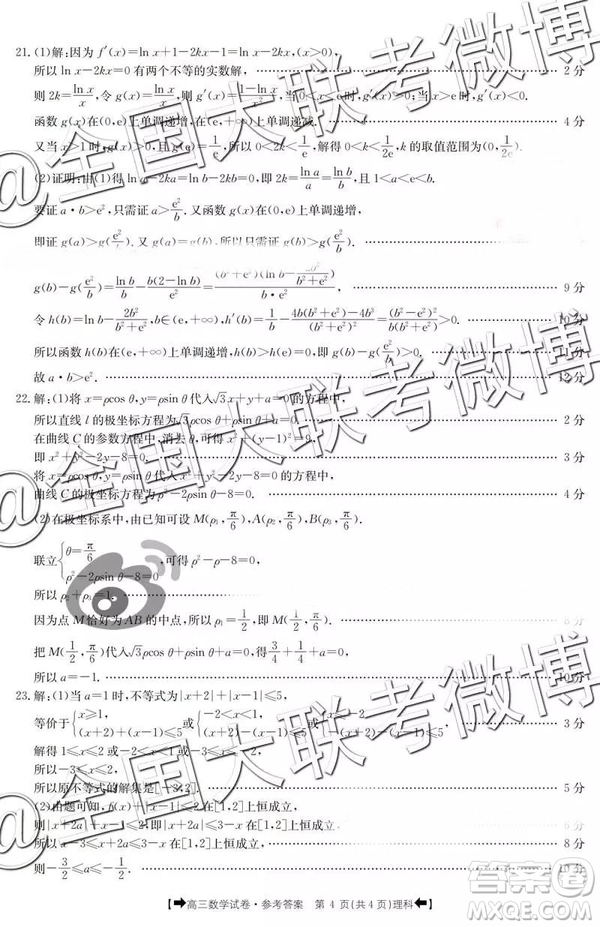 21.(1)解:因为f′(x)=ln x+1-2kx-1=ln x-2kx,(x>0),
所以ln x-2kx=0有两个不等的实数解, 2分
则2k=ln x/x,令g(x)=ln x/x,则g′(x)=(1-ln x)/x²,当0<x<e时,g′(x)>0;当x>e时,g′(x)<0.
函数g(x)在(0,e)上单调递增,在(e,+∞)上单调递减. 4分
又当x>1时,g(x)>0,且g(e)=1/e,所以0<2k<1/e,解得0<k<1/2e,k的取值范围为(0,1/2e).
(2)证明:由(1)得ln a-2ka=ln b-2kb=0,即2k=ln a/a=ln b/b,且1<a<e<b.
要证a·b>e²,只需证a>e²/b.又函数g(x)在(0,e)上单调递增,
即证g(a)>g(e²/b).又g(a)=g(b),所以只需证g(b)>g(e²/b).
g(b)-g(e²/b)=ln b/b-b(2-ln b)/e²=(b²+e²)(ln b-2b²/(b²+e²))/(b·e²), 9分
令h(b)=ln b-2b²/(b²+e²),b∈(e,+∞),h′(b)=1/b-(4b(b²+e²)-4b³)/(b²+e²)²=(b²-e²)²/b(b²+e²)²>0. 10分
所以函数h(b)在b∈(e,+∞)上单调递增, 11分
故a·b>e². 12分
22.解:(1)将x=ρcos θ,y=ρsin θ代入√3x+y+a=0的方程中,
所以直线l的极坐标方程为√3ρcos θ+ρsin θ+a=0. 2分
在曲线C的参数方程中,消去θ,可得x²+(y-1)²=9,
即x²+y²-2y-8=0, 3分
将x=ρcos θ,y=ρsin θ代入x²+y²-2y-8=0的方程中,
曲线C的极坐标方程为ρ²-2ρsin θ-8=0. 4分
(2)在极坐标系中,由已知可设M(ρ₁,π/6),A(ρ₂,π/6),B(ρ₃,π/6).
联立{θ=π/6 ρ²-2ρsin θ-8=0,可得ρ²-ρ-8=0,
所以ρ₂+ρ₃=1.
因为点M恰好为AB的中点,所以ρ₁=1/2,即M(1/2,π/6). 8分
把M(1/2,π/6)代入√3ρcos θ+ρsin θ+a=0,得3/4+1/4+a=0,
所以a=-1. 10分
23.解:(1)当a=1时,不等式为|x+2|+|x-1|≤5,
等价于{x≥1, (x+2)+(x-1)≤5或{-2<x<1, (x+2)-(x-1)≤5或{x≤-2, -(x+2)-(x-1)≤5, 3分
解得1≤x≤2或-2<x<1或-3≤x≤-2,
所以-3≤x≤2,
所以原不等式的解集是[-3,2]. 5分
(2)由题可知,f(x)+|x-1|≤2在[1,2]上恒成立,
则|x+2a|+|x-1|≤2在[1,2]上恒成立,则|x+2a|≤3-x在[1,2]上恒成立, 6分
所以x-3≤x+2a≤3-x在[1,2]上恒成立, 8分
则-3/2≤a≤-1/2. 10分
高三数学试卷·参考答案 第4页(共4页)理科
@全国大联考微博
@全国大联考微博
@全国大联考微博
答案圈